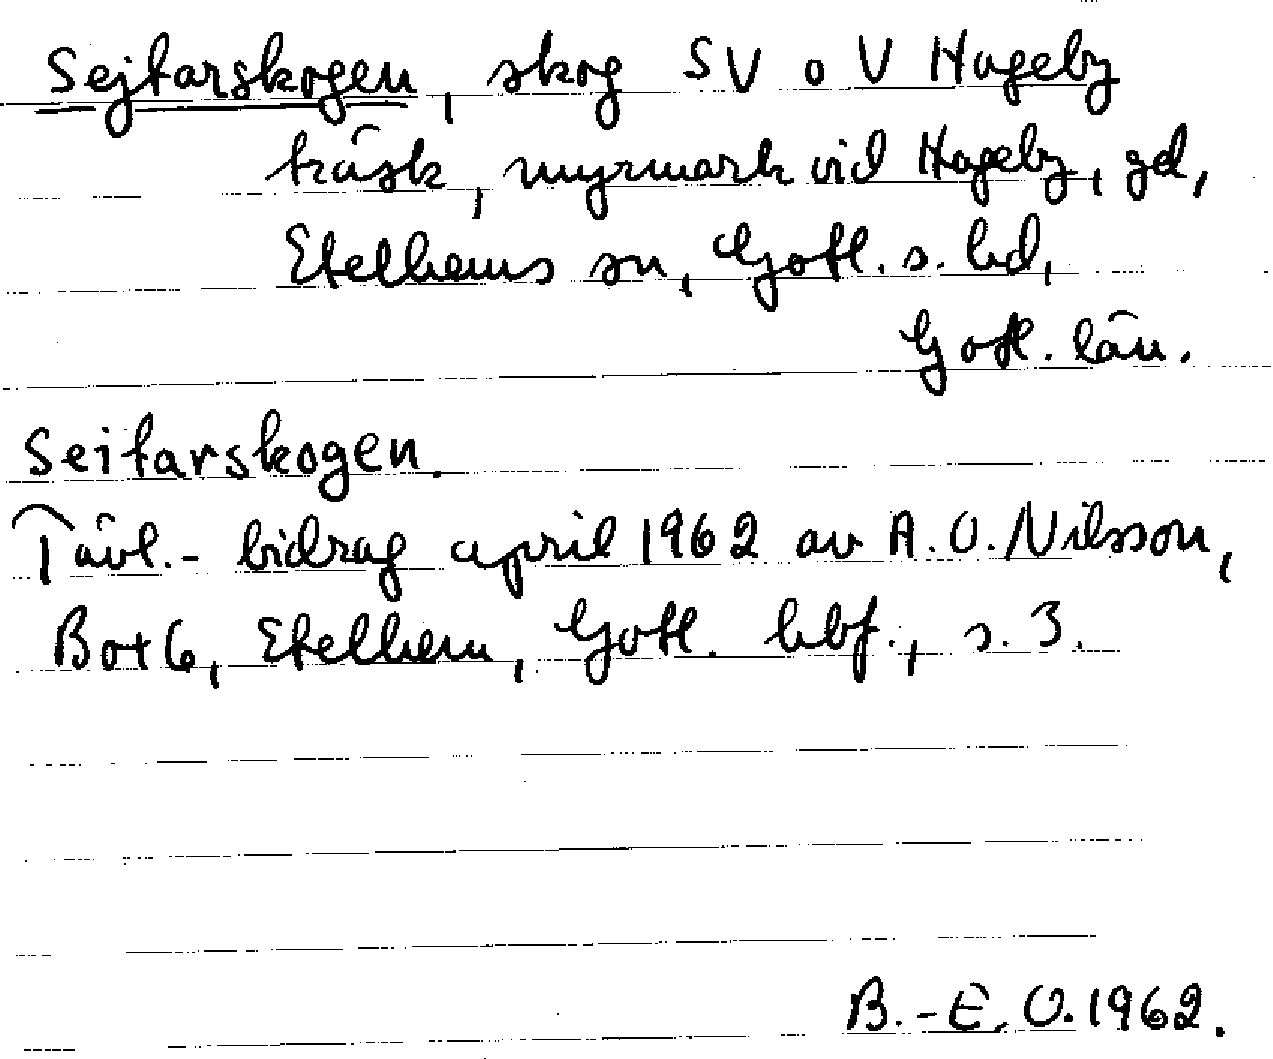 Sejtarskogen, skog SV o V Hageby
träsk, myrmark vid Hageby, gd,
Etelhems sn, Gotl. s. hd,
Gotl. län.
Seitarskogen.
Tävl.- bidrag april 1962 av A.O. Nilsson,
Box 6, Etelhem, Gotl. hbf., s. 3.
B.-E. O. 1962.